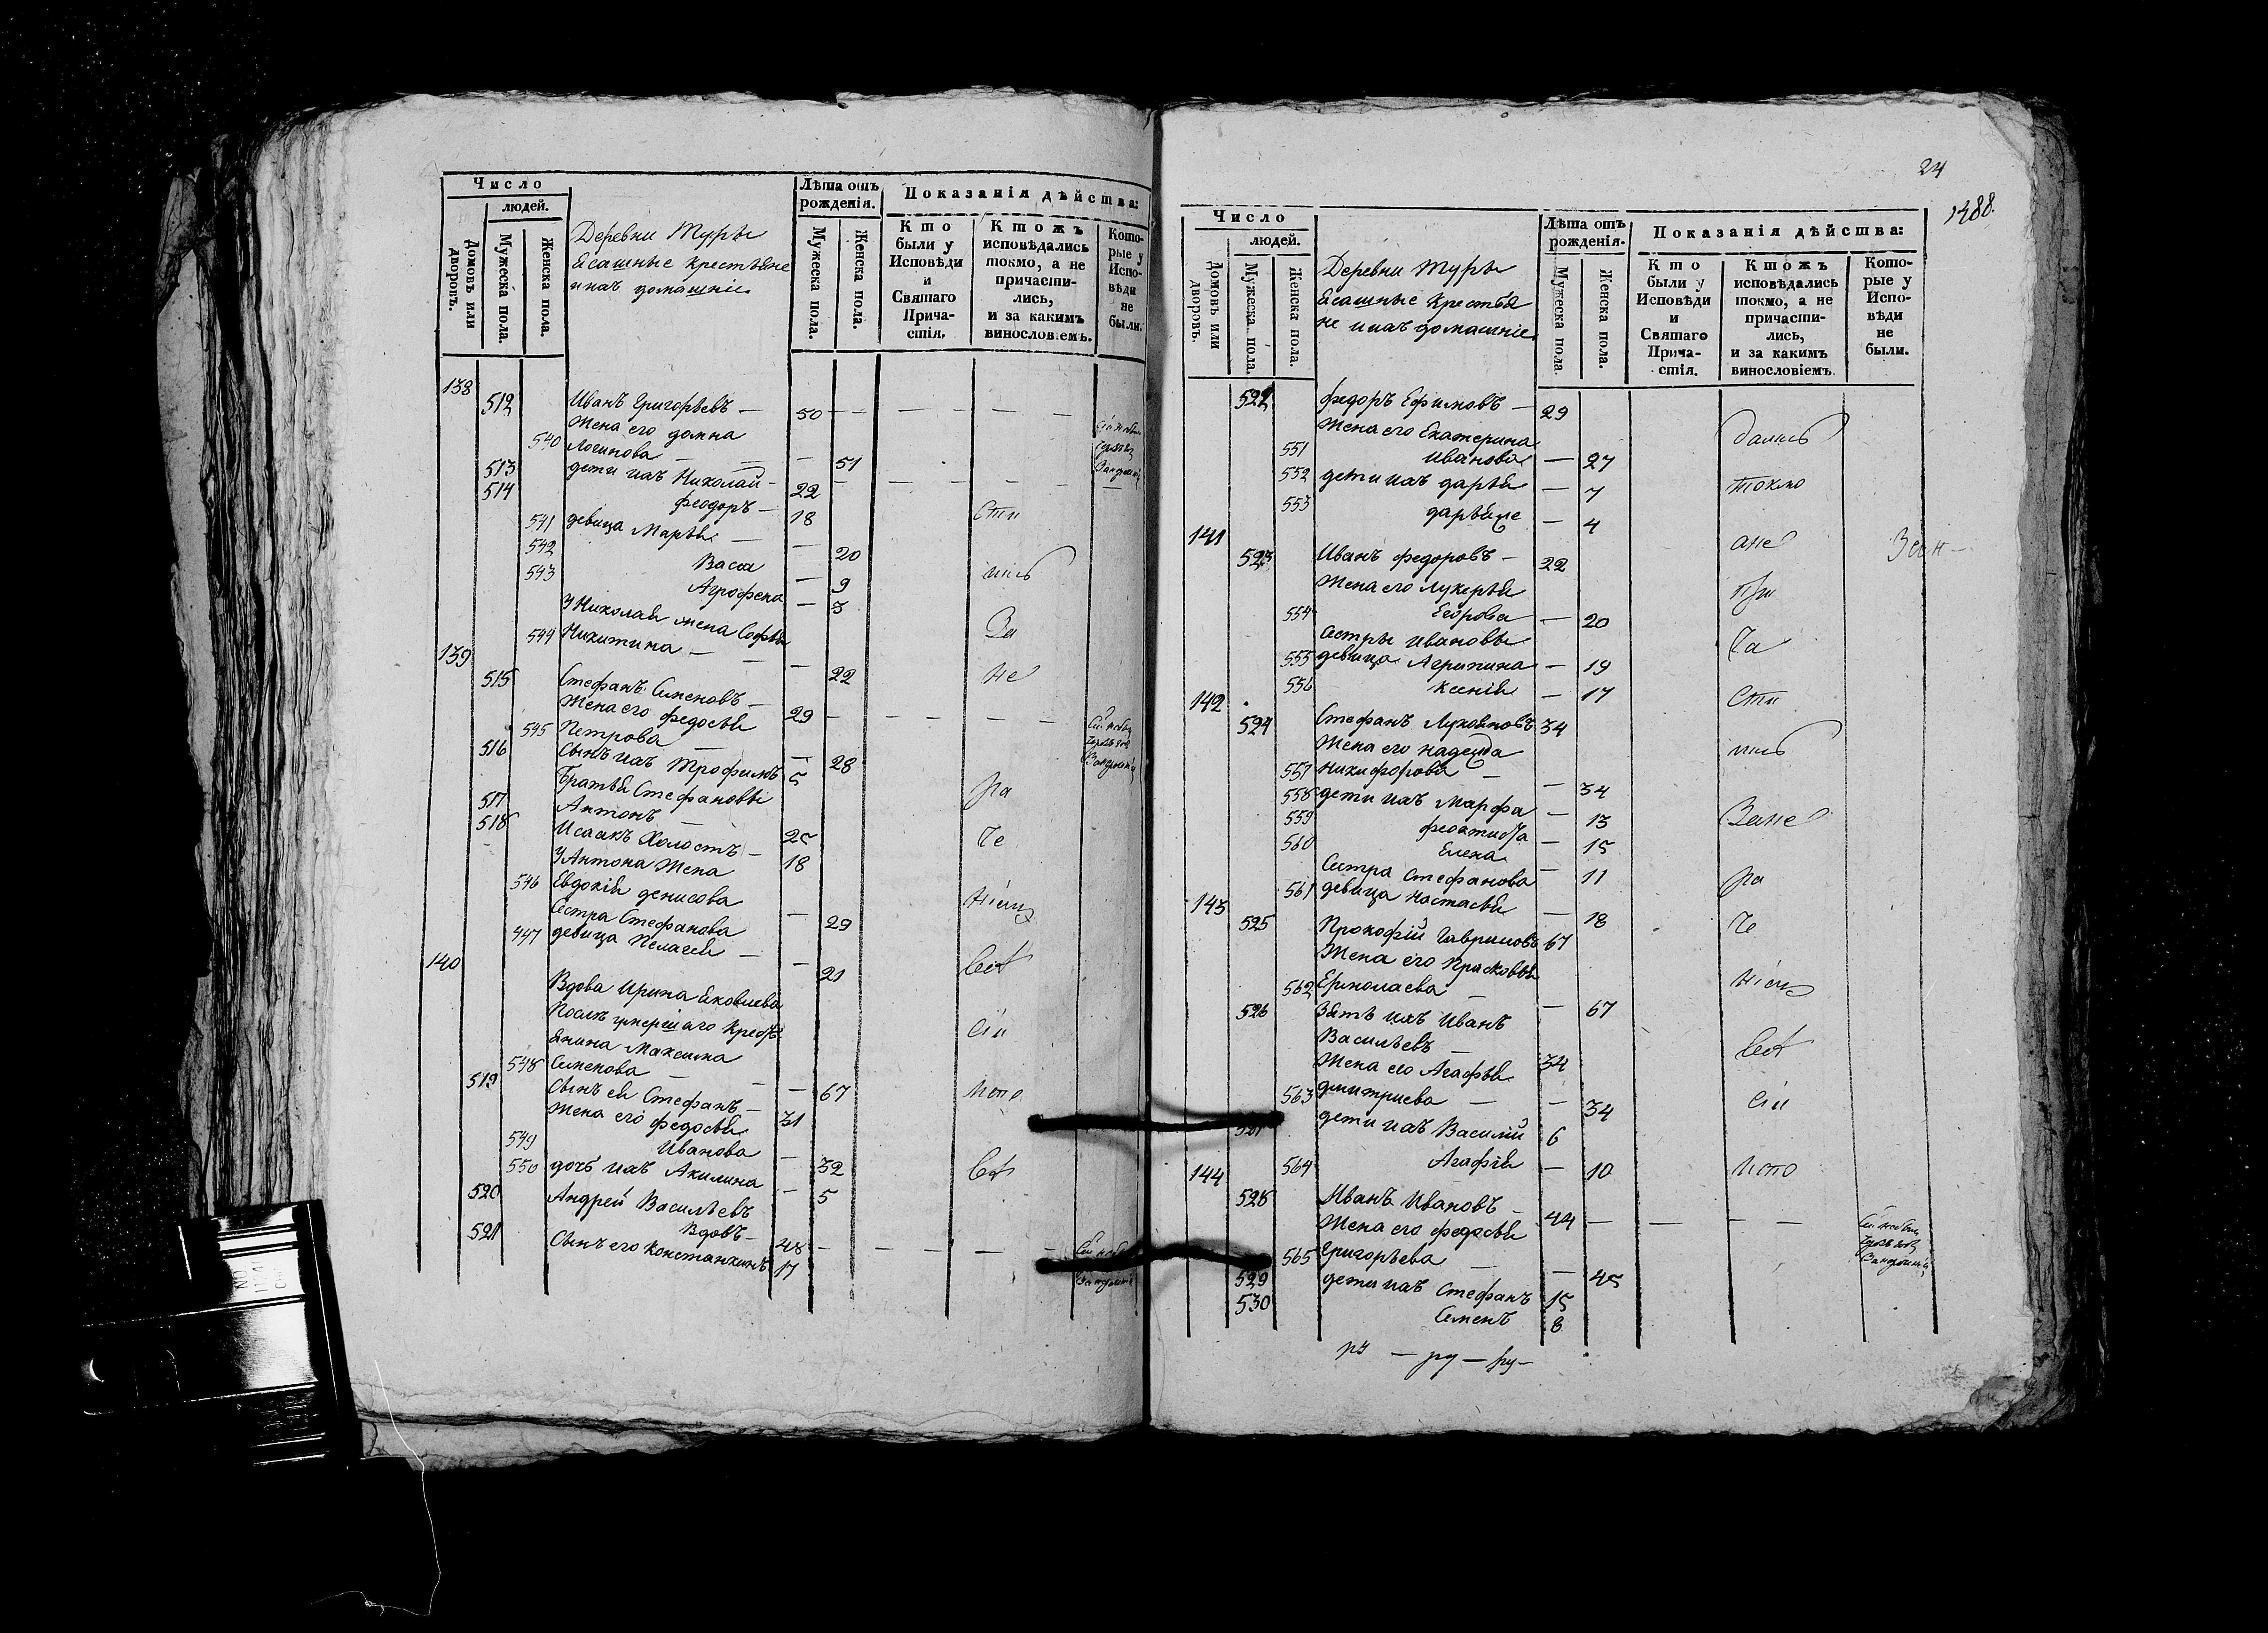 Число
людей.
Домовъ или дворовъ.
Мужеска пола.
Женска пола.
Деревни Туры
Ясашные крестьяне
и ихъ домашніе
Лѣта отъ
рожденія.
Мужеска пола.
Женска пола.
Показанія дѣйства:
Кто
были у
Исповѣди
и
Святаго
Прича-
стія.
Ктожъ
исповѣдались
токмо, а не
причасти-
лись,
и за какимъ
винословіемъ.
Кото-
рые у
Испо-
вѣди
не
были.
138
512 Иванъ Григорьевъ — 50
Жена его домна
540 Логинова — — — 51
513 дети ихъ Николай — 22
514 феодоръ — 18 сти
541 девица Марья — — 20
542 Васса — 9 лись
543 Агрофена — 3
У Николая жена Софья За
544 Никитина — — — 22 не
139
515 Стефанъ Семеновъ — 29
Жена его федосья
545 Петрова — — 28
516 Сынъ ихъ Трофимъ 5
Братья Стефановы ра
517 Антонъ — 25
518 Исаакъ Холостъ — 18 че
У Антона Жена
546 Евдокія денисова — 29
Сестра Стефанова
447 девица Пелагея — — 21
140
Вдова Ирина Яковлева
После умершаго крест
янина Максима сіи
548 Семенова — — — 67
519 Сынъ ея Стефанъ — 31 испо
Жена его федосья
549 Иванова — 32
550 дочь ихъ Акилина — 5
520 Андрей Васильевъ
Вдовъ — 48
521 Сынъ его Константинъ 17
24
1488.
Число
людей.
Домовъ или дворовъ.
Мужеска пола.
Женска пола.
Деревни Туры
Ясашные крестья
не и ихъ домашніе
Лѣта отъ
рожденія.
Мужеска пола.
Женска пола.
Показанія дѣйства:
Кто
были у
Исповѣди
и
Святаго
Прича-
стія.
Ктожъ
исповѣдались
токмо, а не
причасти-
лись,
и за какимъ
винословіемъ.
Кото-
рые у
Испо-
вѣди
не
были.
522 федоръ Ефимовъ — 29
Жена его Екатерина дались
551 Иванова — 27
552 дети ихъ дарья — 7 токмо
553 дарья же — 4
141 ане
523 Иванъ федоровъ — 22
Жена его лукерья при
554 Егорова — 20
Сестры Ивановы ча
555 девица Агрипина — 19
556 ксенія — 17 сти
142
524 Стефанъ Лукояновъ 34
Жена его надежда лись
557 Никифорова — — 34
558 дети ихъ Марфа — 13
559 феоктиста — 15 Зане
560 Елена — 11
Сестра Стефанова ра
561 девица Настасья — 18
143 че
525 Прокофій Гавриловъ 67
Жена его Прасковья
562 Ермолаева — — 67
526 Зять ихъ Иванъ
Васильевъ — 34
Жена его Агафья
563 дмитриева — — 34 сіи
527 дети ихъ Василий 6
564 Агафія — 10 испо
144
528 Иванъ Ивановъ — 44
Жена его федосья
565 Григорьева — — 45
529 дети ихъ Стефанъ 15
530 Семенъ 8